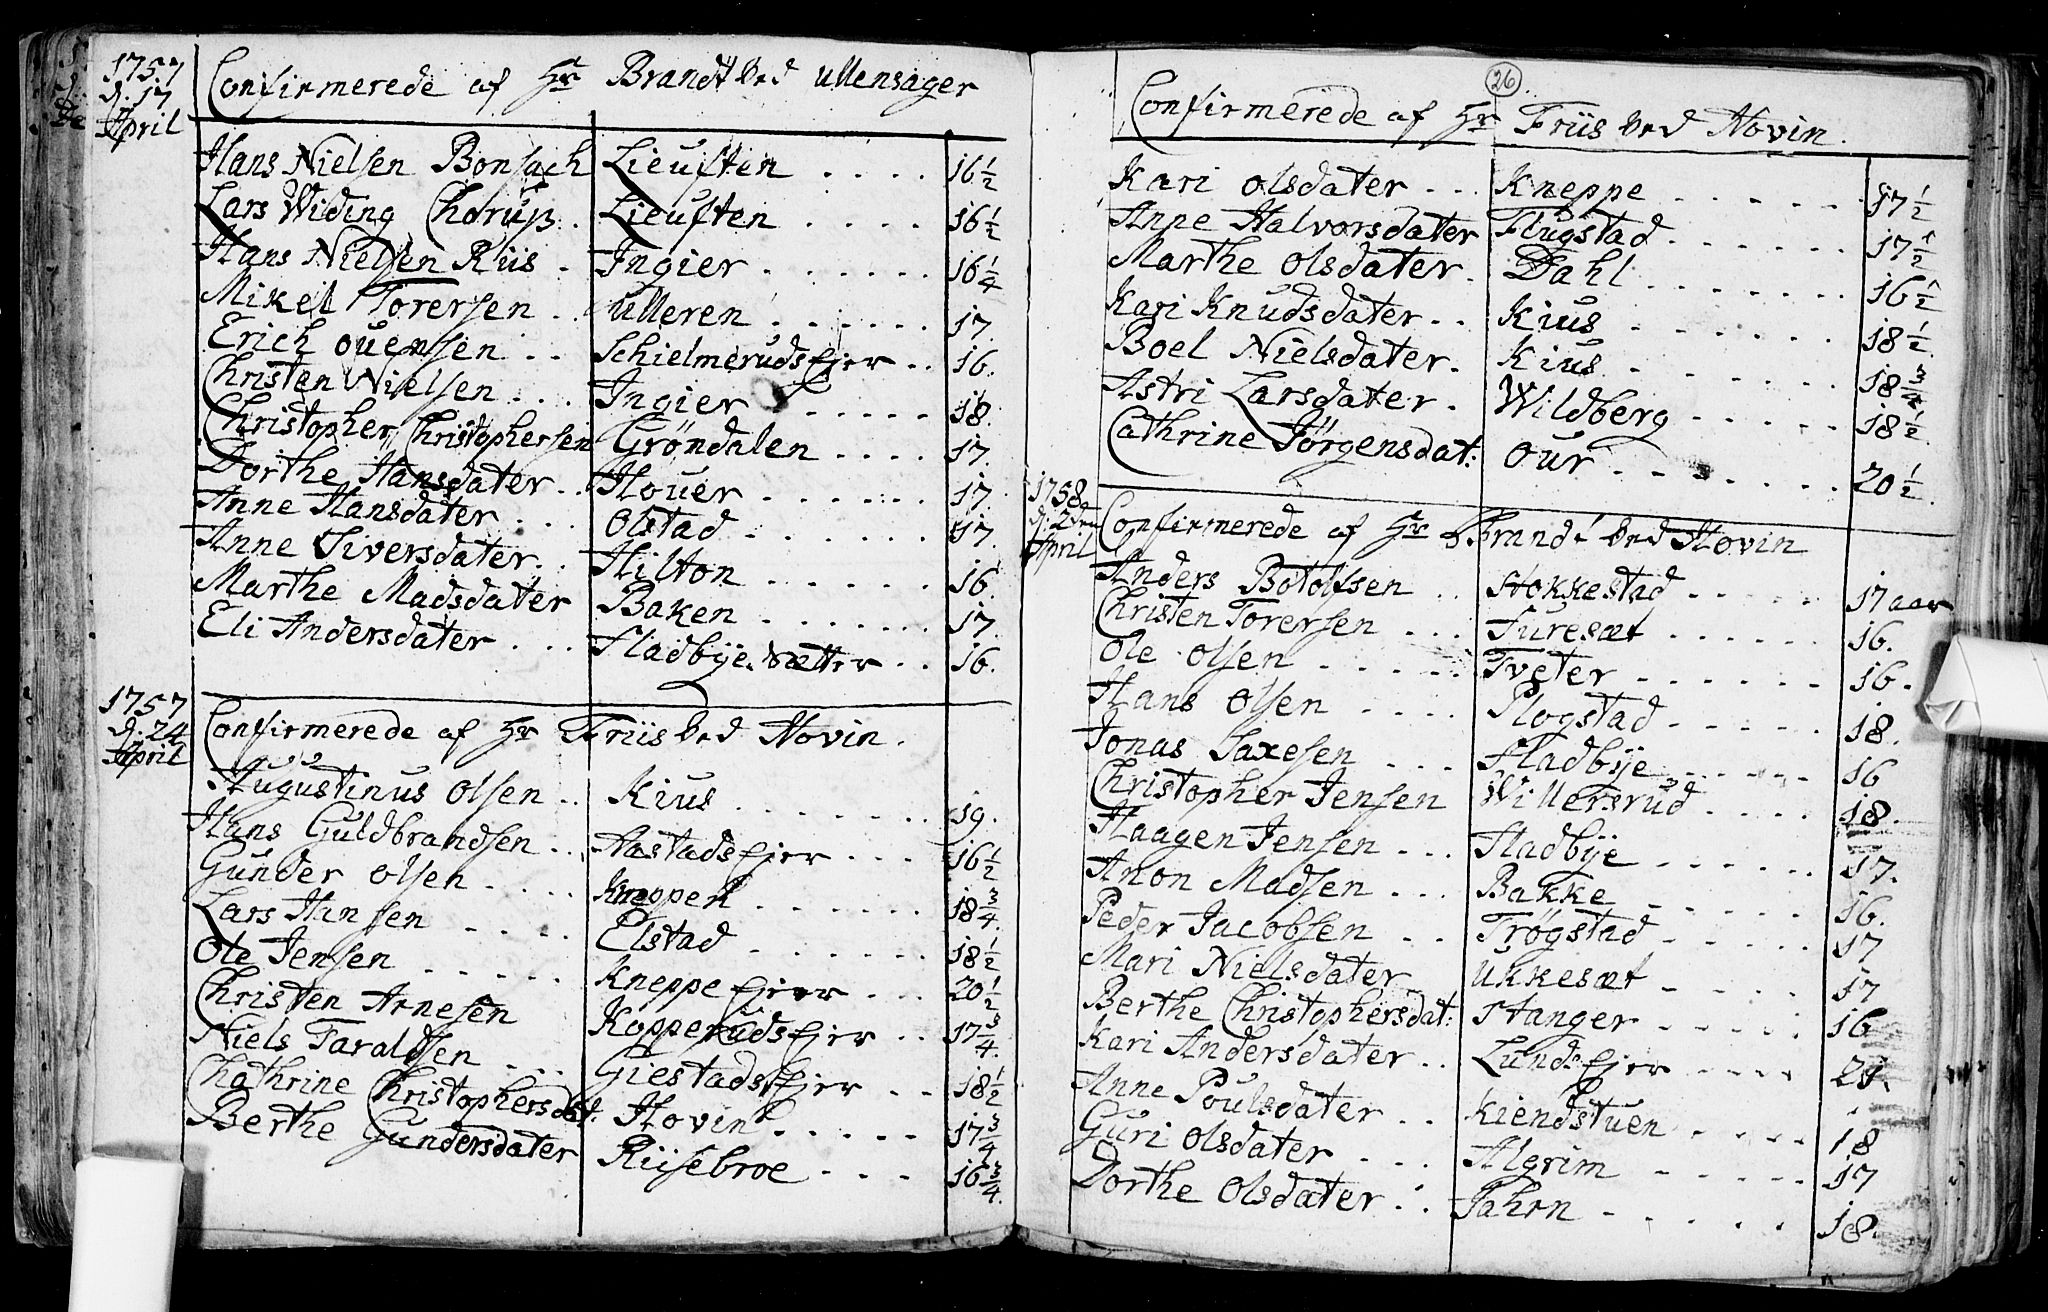 1757
d. 17
April
Confirmerede af Hr Brandt ved Ullensager
Hans Nielsen Bonsach Lieusten .... 16 1/2
Lars Widing Chorup . Lieusten .... 16 1/2
Hans Nielsen Riis . Ingier ...... 16 1/4
Mikel Torersen .. Ulleren ...... 17.
Erich Ouensen .. Schielmerudsejer .. 16.
Christen Nielsen ... Ingier ...... 18.
Christopher Christophersen Gröndalen .... 17.
Dorthe Hansdater .. Houer ...... 17.
Anne Hansdater ... Olstad ...... 17.
Anne Siversdater .. Hilton ...... 16.
Marthe Madsdater Baken ...... 17.
Eli Andersdater ... Fladbye Sætter .. 16.
1757
d. 24
April
Confirmerede af Hr Friis ved Hovin.
Augustinus Olsen .. Kius ....... 19.
Hans Guldbrandsen .. Aastadsejer ... 16 1/2
Gunder Olsen .... Kneppen ...... 18 3/4.
Lars Hansen .... Elstad ...... 18 1/2
Ole Jensen ..... Kneppe ejer ... 20 1/2
Christen Arnesen Kopperudsejer .. 17 3/4.
Niels Faraldsen ... Giestadsejer .. 18 1/2
Chathrine Christophersdat. Hovin ...... 17 3/4
Berthe Gundersdater Riisebroe .... 16 3/4.
26
Confirmerede af Hr Friis ved Hovin.
Kari Olsdater .. Kneppe ...... 17 1/2
Anne Halvorsdater Flugstad ...... 17 1/2
Marthe Olsdater . Dahl ....... 16 1/2
Kari Knudsdater .. Kius ...... 18 1/2.
Boel Nielsdater . Kius ...... 18 3/4.
Astri Larsdater . Wildberg ..... 18 1/2.
Cathrine Jörgensdat: Our ...... 20 1/2.
1758
d. 2den
April
Confirmerede af Hr Brandt ved Hovin
Anders Botolfsen .. Hokkestad ..... 17 aar
Christen Torersen ... Furesæt ...... 16.
Ole Olsen ..... Tveter ...... 16.
Hans Olsen .... Plogstad ..... 18.
Jonas Saxesen ... Fladbye ..... 16
Christopher Jensen Willersrud .... 18.
Haagen Jensen ... Fladbye ..... 17.
Amon Madsen ... Bakke ...... 16.
Peder Jacobsen .. Trøgstad ..... 17
Mari Nielsdater . Ukkesæt ..... 17
Berthe Christophersdat: Hanger ..... 16
Kari Andersdater .. Lundsejer .... 21.
Anne Poulsdater .. Kiendstuen .... 18
Guri Olsdater ... Algrim ..... 17
Dorthe Olsdater .. Fahrn ...... 18.